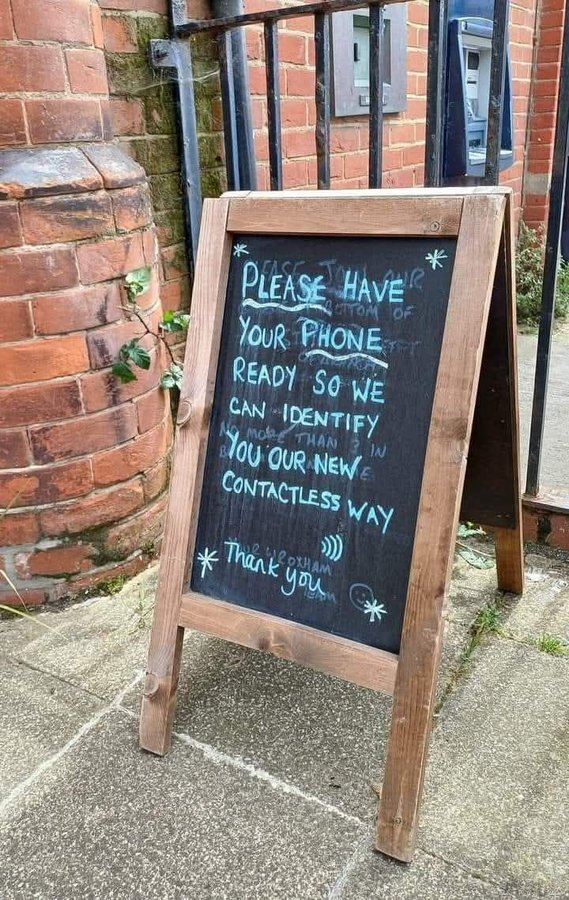 PLEASE HAVE
YOUR PHONE
READY SO WE
CAN IDENTIFY
YOU OUR NEW
CONTACTLESS WAY
Thank you